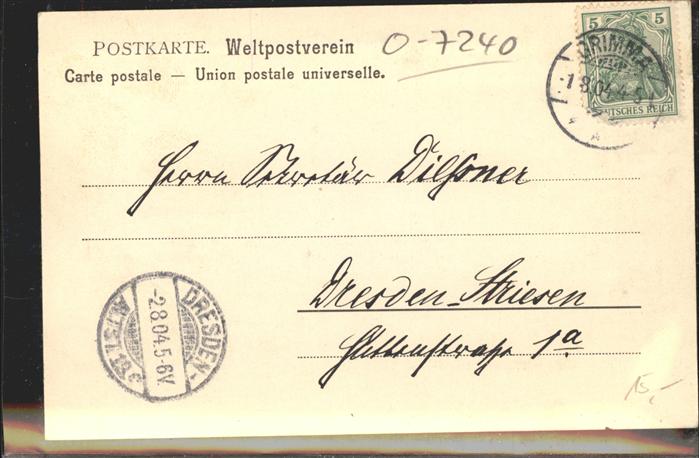 POSTKARTE. Weltpostverein
O-7240
Carte postale — Union postale universelle.
5 5
DEUTSCHES REICH
GRIMMA
-1.8.04.4-5N
Herrn Sekretär
Dresden-Striesen
1a
DRESDEN-
-2.8.04.5-6V.
15,-